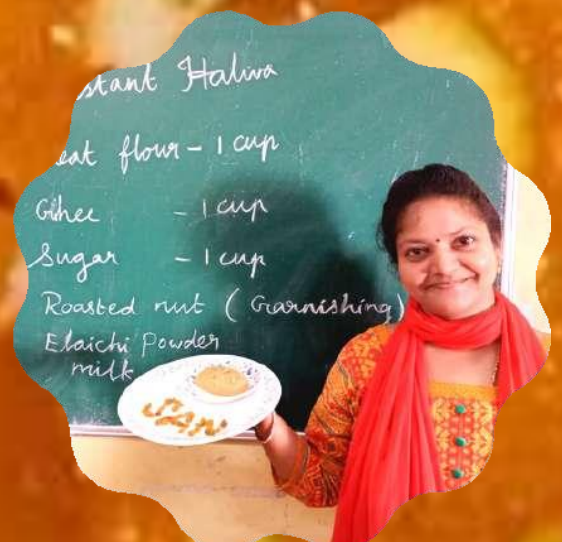 stant Halwa
eat flour - 1 cup
Ghee - 1 cup
Sugar - 1 cup
Roasted nut ( Garnishing)
Elaichi Powder
milk
SAN